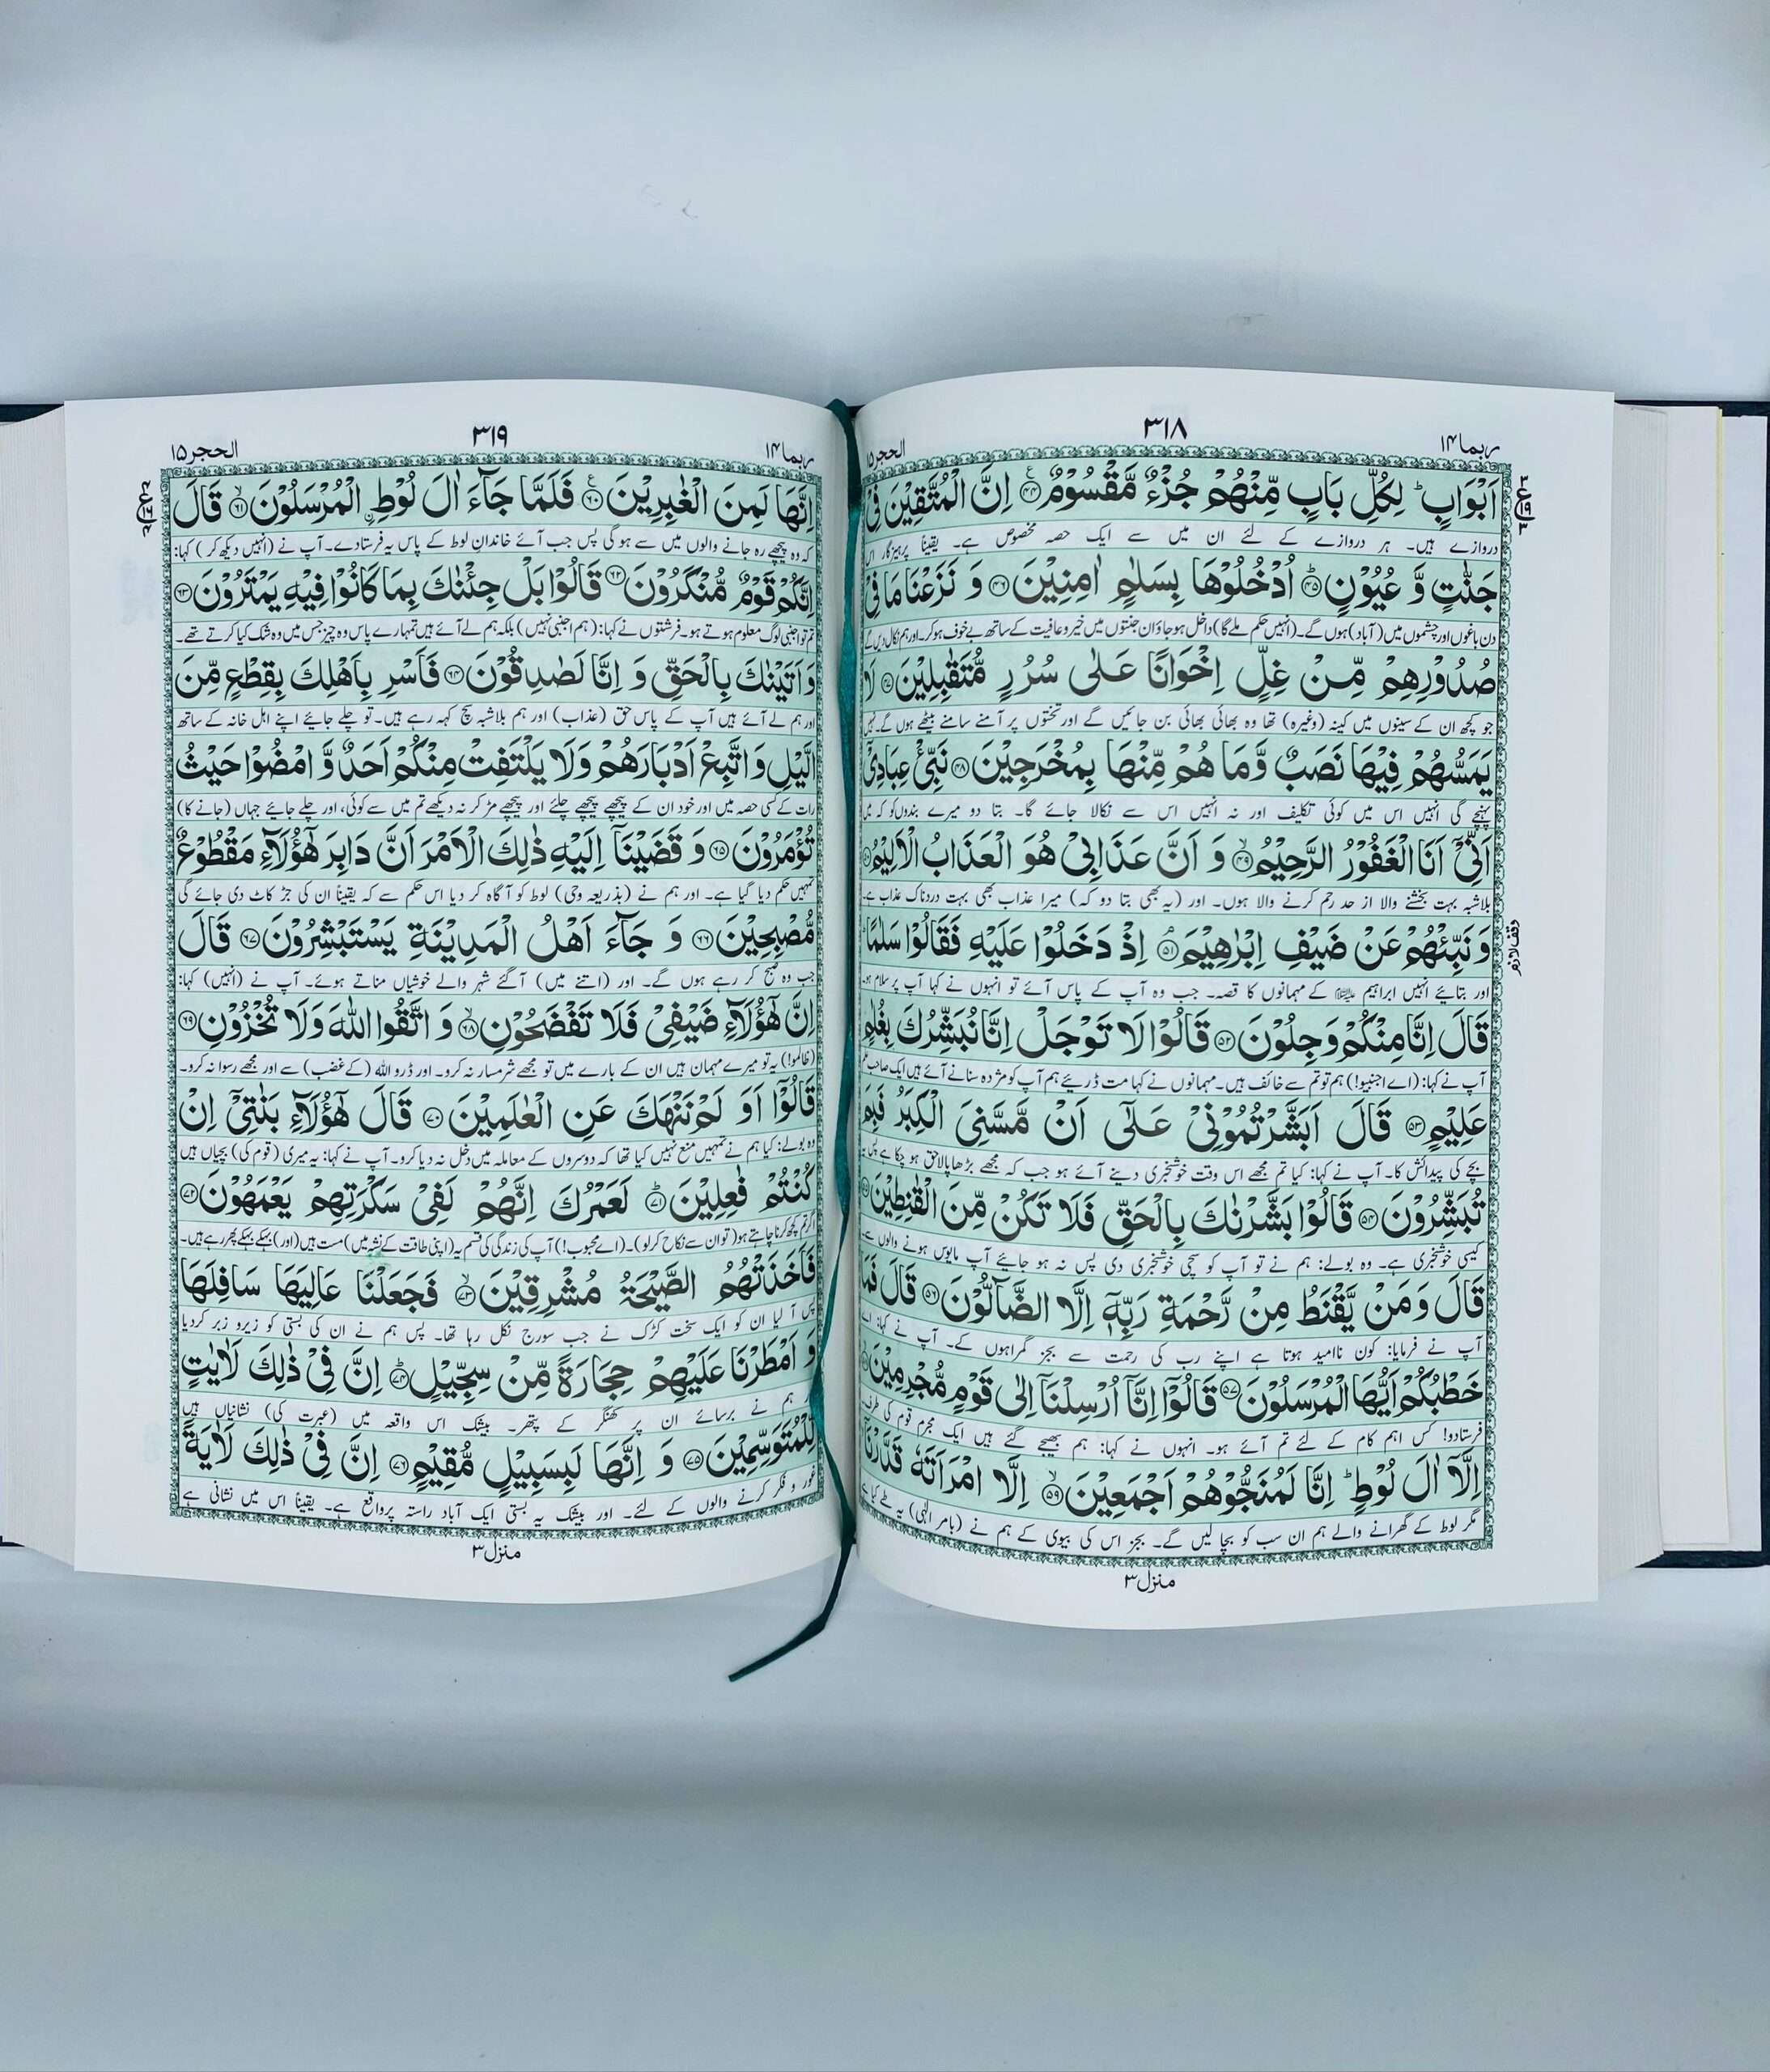 ربما ۱۴
۳۱۸
الحجر ۱۵
اَبْوَابٍ ؕ لِكُلِّ بَابٍ مِّنْهُمْ جُزْءٌ مَّقْسُوْمٌ ﴿۴۴﴾ اِنَّ الْمُتَّقِيْنَ فِيْ
دروازے ہیں۔ ہر دروازے کے لئے ان میں سے ایک حصہ مخصوص ہے۔ یقیناً پرہیزگار اس
جَنّٰتٍ وَّ عُيُوْنٍ ﴿۴۵﴾ اُدْخُلُوْهَا بِسَلٰمٍ اٰمِنِيْنَ ﴿۴۶﴾ وَ نَزَعْنَا مَا فِيْ
دن باغوں اور چشموں میں (آباد) ہوں گے۔ (انہیں حکم ملے گا) داخل ہو جاؤ ان جنتوں میں خیر و عافیت کے ساتھ بے خوف ہو کر۔ اور ہم نکال دیں گے
صُدُوْرِهِمْ مِّنْ غِلٍّ اِخْوَانًا عَلٰى سُرُرٍ مُّتَقٰبِلِيْنَ ﴿۴۷﴾ لَا
جو کچھ ان کے سینوں میں کینہ (وغیرہ) تھا وہ بھائی بھائی بن جائیں گے اور تختوں پر آمنے سامنے بیٹھے ہوں گے۔ نہیں
يَمَسُّهُمْ فِيْهَا نَصَبٌ وَّ مَا هُمْ مِّنْهَا بِمُخْرَجِيْنَ ﴿۴۸﴾ نَبِّئْ عِبَادِيْٓ
پہنچے گی انہیں اس میں کوئی تکلیف اور نہ انہیں اس سے نکالا جائے گا۔ بتا دو میرے بندوں کو کہ میں
اَنِّيْٓ اَنَا الْغَفُوْرُ الرَّحِيْمُ ﴿۴۹﴾ وَ اَنَّ عَذَابِيْ هُوَ الْعَذَابُ الْاَلِيْمُ ﴿۵۰﴾
بلاشبہ بہت بخشنے والا از حد رحم کرنے والا ہوں۔ اور (یہ بھی بتا دو کہ) میرا عذاب بھی بہت دردناک عذاب ہے۔
وَ نَبِّئْهُمْ عَنْ ضَيْفِ اِبْرٰهِيْمَ ﴿۵۱﴾ اِذْ دَخَلُوْا عَلَيْهِ فَقَالُوْا سَلٰمًا ؕ
وقف لازم
اور بتایئے انہیں ابراہیم ﷺ کے مہمانوں کا قصہ۔ جب وہ آپ کے پاس آئے تو انہوں نے کہا آپ پر سلام ہو۔
قَالَ اِنَّا مِنْكُمْ وَجِلُوْنَ ﴿۵۲﴾ قَالُوْا لَا تَوْجَلْ اِنَّا نُبَشِّرُكَ بِغُلٰمٍ
آپ نے کہا: (اے اجنبیو!) ہم تو تم سے خائف ہیں۔ مہمانوں نے کہا مت ڈریئے ہم آپ کو مژدہ سنانے آئے ہیں ایک صاحب علم
عَلِيْمٍ ﴿۵۳﴾ قَالَ اَبَشَّرْتُمُوْنِيْ عَلٰٓى اَنْ مَّسَّنِيَ الْكِبَرُ فَبِمَ
بچے کی پیدائش کا۔ آپ نے کہا: کیا تم مجھے اس وقت خوشخبری دینے آئے ہو جب کہ مجھے بڑھاپا لاحق ہو چکا ہے پس یہ
تُبَشِّرُوْنَ ﴿۵۴﴾ قَالُوْا بَشَّرْنٰكَ بِالْحَقِّ فَلَا تَكُنْ مِّنَ الْقٰنِطِيْنَ ﴿۵۵﴾
کیسی خوشخبری ہے۔ وہ بولے: ہم نے تو آپ کو سچی خوشخبری دی پس نہ ہو جائیے آپ مایوس ہونے والوں سے۔
قَالَ وَ مَنْ يَّقْنَطُ مِنْ رَّحْمَةِ رَبِّهٖٓ اِلَّا الضَّآلُّوْنَ ﴿۵۶﴾ قَالَ فَمَا
آپ نے فرمایا: کون ناامید ہوتا ہے اپنے رب کی رحمت سے بجز گمراہوں کے۔ آپ نے کہا: اے
خَطْبُكُمْ اَيُّهَا الْمُرْسَلُوْنَ ﴿۵۷﴾ قَالُوْٓا اِنَّآ اُرْسِلْنَآ اِلٰى قَوْمٍ مُّجْرِمِيْنَ ﴿۵۸﴾
فرستادو! کس اہم کام کے لئے تم آئے ہو۔ انہوں نے کہا: ہم بھیجے گئے ہیں ایک مجرم قوم کی طرف۔
اِلَّآ اٰلَ لُوْطٍ ؕ اِنَّا لَمُنَجُّوْهُمْ اَجْمَعِيْنَ ﴿۵۹﴾ اِلَّا امْرَاَتَهٗ قَدَّرْنَآ
مگر لوط کے گھرانے والے ہم ان سب کو بچا لیں گے۔ بجز اس کی بیوی کے ہم نے (بامر الٰہی) یہ طے کیا ہے
منزل ۳
ربما ۱۴
۳۱۹
الحجر ۱۵
اِنَّهَا لَمِنَ الْغٰبِرِيْنَ ﴿۶۰﴾ فَلَمَّا جَآءَ اٰلَ لُوْطِ ۨالْمُرْسَلُوْنَ ﴿۶۱﴾ قَالَ
کہ وہ پیچھے رہ جانے والوں میں سے ہو گی پس جب آئے خاندان لوط کے پاس یہ فرستادے۔ آپ نے (انہیں دیکھ کر) کہا:
اِنَّكُمْ قَوْمٌ مُّنْكَرُوْنَ ﴿۶۲﴾ قَالُوْا بَلْ جِئْنٰكَ بِمَا كَانُوْا فِيْهِ يَمْتَرُوْنَ ﴿۶۳﴾
تم تو اجنبی لوگ معلوم ہوتے ہو۔ فرشتوں نے کہا: (ہم اجنبی نہیں) بلکہ ہم لے آئے ہیں تمہارے پاس وہ چیز جس میں وہ شک کیا کرتے تھے۔
وَ اَتَيْنٰكَ بِالْحَقِّ وَ اِنَّا لَصٰدِقُوْنَ ﴿۶۴﴾ فَاَسْرِ بِاَهْلِكَ بِقِطْعٍ مِّنَ
اور ہم لے آئے ہیں آپ کے پاس حق (عذاب) اور ہم بلاشبہ سچ کہہ رہے ہیں۔ تو چلے جائیے اپنے اہل خانہ کے ساتھ
الَّيْلِ وَ اتَّبِعْ اَدْبَارَهُمْ وَ لَا يَلْتَفِتْ مِنْكُمْ اَحَدٌ وَّ امْضُوْا حَيْثُ
رات کے کسی حصہ میں اور خود ان کے پیچھے پیچھے چلئے اور پیچھے مڑ کر نہ دیکھے تم میں سے کوئی، اور چلے جائیے جہاں (جانے کا)
تُؤْمَرُوْنَ ﴿۶۵﴾ وَ قَضَيْنَآ اِلَيْهِ ذٰلِكَ الْاَمْرَ اَنَّ دَابِرَ هٰٓؤُلَآءِ مَقْطُوْعٌ
تمہیں حکم دیا گیا ہے۔ اور ہم نے (بذریعہ وحی) لوط کو آگاہ کر دیا اس حکم سے کہ یقیناً ان کی جڑ کاٹ دی جائے گی
مُّصْبِحِيْنَ ﴿۶۶﴾ وَ جَآءَ اَهْلُ الْمَدِيْنَةِ يَسْتَبْشِرُوْنَ ﴿۶۷﴾ قَالَ
جب وہ صبح کر رہے ہوں گے۔ اور (اتنے میں) آگئے شہر والے خوشیاں مناتے ہوئے۔ آپ نے (انہیں) کہا:
اِنَّ هٰٓؤُلَآءِ ضَيْفِيْ فَلَا تَفْضَحُوْنِ ﴿۶۸﴾ وَ اتَّقُوا اللّٰهَ وَ لَا تُخْزُوْنِ ﴿۶۹﴾
(ظالمو!) یہ تو میرے مہمان ہیں ان کے بارے میں تو مجھے شرمسار نہ کرو۔ اور ڈرو اللہ (کے غضب) سے اور مجھے رسوا نہ کرو۔
قَالُوْٓا اَوَ لَمْ نَنْهَكَ عَنِ الْعٰلَمِيْنَ ﴿۷۰﴾ قَالَ هٰٓؤُلَآءِ بَنٰتِيْٓ اِنْ
وہ بولے: کیا ہم نے تمہیں منع نہیں کیا تھا کہ دوسروں کے معاملہ میں دخل نہ دیا کرو۔ آپ نے کہا: یہ میری (قوم کی) بچیاں ہیں
كُنْتُمْ فٰعِلِيْنَ ﴿۷۱﴾ لَعَمْرُكَ اِنَّهُمْ لَفِيْ سَكْرَتِهِمْ يَعْمَهُوْنَ ﴿۷۲﴾
اگر تم کچھ کرنا چاہتے ہو (تو ان سے نکاح کرلو)۔ (اے محبوب!) آپ کی زندگی کی قسم یہ (اپنی طاقت کے نشہ میں) مست ہیں (اور) بہکے بہکے پھر رہے ہیں۔
فَاَخَذَتْهُمُ الصَّيْحَةُ مُشْرِقِيْنَ ﴿۷۳﴾ فَجَعَلْنَا عَالِيَهَا سَافِلَهَا
پس آ لیا ان کو ایک سخت کڑک نے جب سورج نکل رہا تھا۔ پس ہم نے ان کی بستی کو زیر و زبر کر دیا
وَ اَمْطَرْنَا عَلَيْهِمْ حِجَارَةً مِّنْ سِجِّيْلٍ ﴿۷۴﴾ اِنَّ فِيْ ذٰلِكَ لَاٰيٰتٍ
ہم نے برسائے ان پر کھنگر کے پتھر۔ بیشک اس واقعہ میں (عبرت کی) نشانیاں ہیں
لِّلْمُتَوَسِّمِيْنَ ﴿۷۵﴾ وَ اِنَّهَا لَبِسَبِيْلٍ مُّقِيْمٍ ﴿۷۶﴾ اِنَّ فِيْ ذٰلِكَ لَاٰيَةً
غور و فکر کرنے والوں کے لئے۔ اور بیشک یہ بستی ایک آباد راستہ پر واقع ہے۔ یقیناً اس میں نشانی ہے
منزل ۳